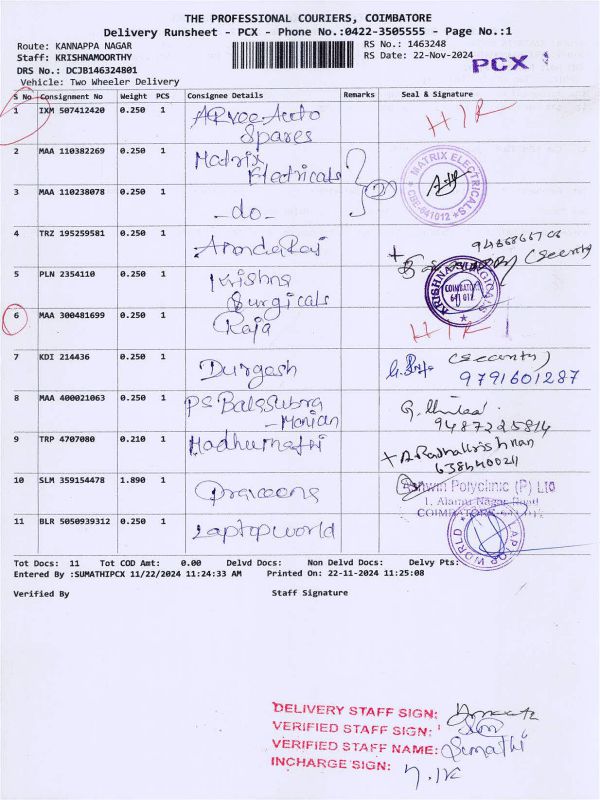 THE PROFESSIONAL COURIERS, COIMBATORE
Delivery Runsheet - PCX - Phone No.:0422-3505555 - Page No.:1
Route: KANNAPPA NAGAR
RS No.: 1463248
Staff: KRISHNAMOORTHY
RS Date: 22-Nov-2024
PCX 1
DRS No.: DCJB146324801
Vehicle: Two Wheeler Delivery
S No Consignment No Weight PCS Consignee Details Remarks Seal & Signature
1 IXM 507412420 0.250 1 Arvee Auto
Spares
2 MAA 110382269 0.250 1 Matrix
Electricals
MATRIX ELECTRICALS
CBE-641012
3 MAA 110238078 0.250 1 -do-
4 TRZ 195259581 0.250 1
(Security)
5 PLN 2354110 0.250 1 Krishna
Surgicals
KRISHNA SURGICALS
COIMBATORE
641 012
6 MAA 300481699 0.250 1 Raja
7 KDI 214436 0.250 1 Durgash (Security)
9791601287
8 MAA 400021063 0.250 1 PS Balasubra
-Manian
9487225814
9 TRP 4707080 0.210 1 Madhumathi A Radhakrishnan
10 SLM 359154478 1.890 1 Praveena
Ashwin Polyclinic (P) Ltd
1, Alamu Nagar Road
11 BLR 5050939312 0.250 1 Laptop world
LAPTOP WORLD
Tot Docs: 11 Tot COD Amt: 0.00 Delvd Docs: Non Delvd Docs: Delvy Pts:
Entered By :SUMATHIPCX 11/22/2024 11:24:33 AM Printed On: 22-11-2024 11:25:08
Verified By Staff Signature
DELIVERY STAFF SIGN:
VERIFIED STAFF SIGN:
VERIFIED STAFF NAME: Sumathi
INCHARGE SIGN: